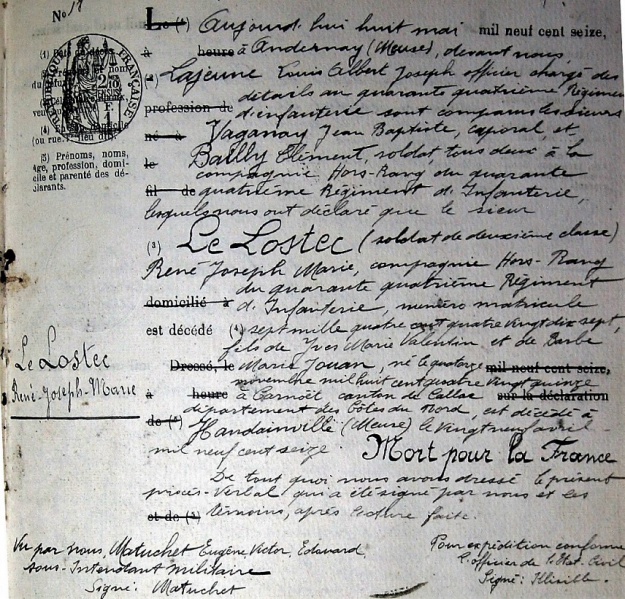 No 18
Le (1) Aujourd'hui huit mai mil neuf cent seize,
à heure à Andernay (Meuse), devant nous,
(2) Lajeune Louis Albert Joseph officier chargé des
détails au quarante quatrième Régiment
profession de d'infanterie sont comparus les sieurs
né à Vaganay Jean Baptiste, caporal, et
le Bailly Clément, soldat, tous deux à la
compagnie Hors-Rang du quarante
fil de quatrième Régiment d'Infanterie,
lesquels nous ont déclaré que le sieur
(3) Le Lostec (soldat de deuxième classe)
René Joseph Marie, compagnie Hors-Rang
du quarante quatrième Régiment
domicilié à d'Infanterie, numéro matricule
est décédé (4) sept mille quatre cent quatre vingt dix sept,
fils de Yves Marie Valentin et de Barbe
Dressé, le Marie Jouan, né le quatorze mil neuf cent seize,
novembre mil huit cent quatre vingt quinze
à heure à Carnoët canton de Callac sur la déclaration
département des Côtes du Nord, est décédé à
de (5) Haudainville (Meuse) le vingt neuf avril
mil neuf cent seize. Mort pour la France
De tout quoi nous avons dressé le présent
procès-Verbal qui a été signé par nous et les
et de (5) témoins, après lecture faite.
(4)
(ou rue)
(5) Prénoms, noms,
âge, profession, domi-
cile et parenté des dé-
clarants.
RÉPUBLIQUE FRANÇAISE
Le Lostec
René-Joseph-Marie
Vu par nous, Matuchet Eugène, Victor, Edouard
Sous-Intendant Militaire
Signé: Matuchet
Pour expédition conforme
l'officier de l'Etat-Civil
Signé: Illisible.